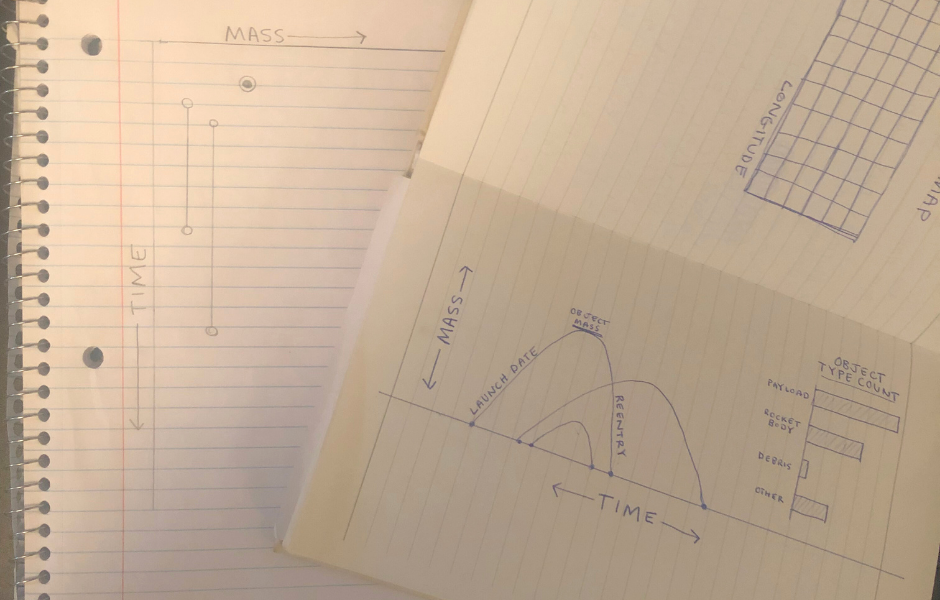 MASS
TIME
LONGITUDE
MAP
MASS
OBJECT
MASS
LAUNCH DATE
REENTRY
TIME
OBJECT
TYPE COUNT
PAYLOAD
ROCKET
BODY
DEBRIS
OTHER